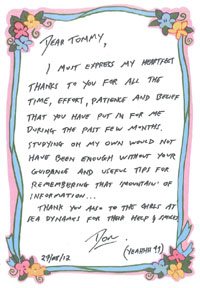 DEAR TOMMY,
I MUST EXPRESS MY HEARTFELT
THANKS TO YOU FOR ALL THE
TIME, EFFORT, PATIENCE AND BELIEF
THAT YOU HAVE PUT IN FOR ME
DURING THE PAST FEW MONTHS.
STUDYING ON MY OWN WOULD NOT
HAVE BEEN ENOUGH WITHOUT YOUR
GUIDANCE AND USEFUL TIPS FOR
REMEMBERING THAT 'MOUNTAIN' OF
INFORMATION...
THANK YOU ALSO TO THE GIRLS AT
SEA DYNAMICS FOR THEIR HELP &
29/08/12